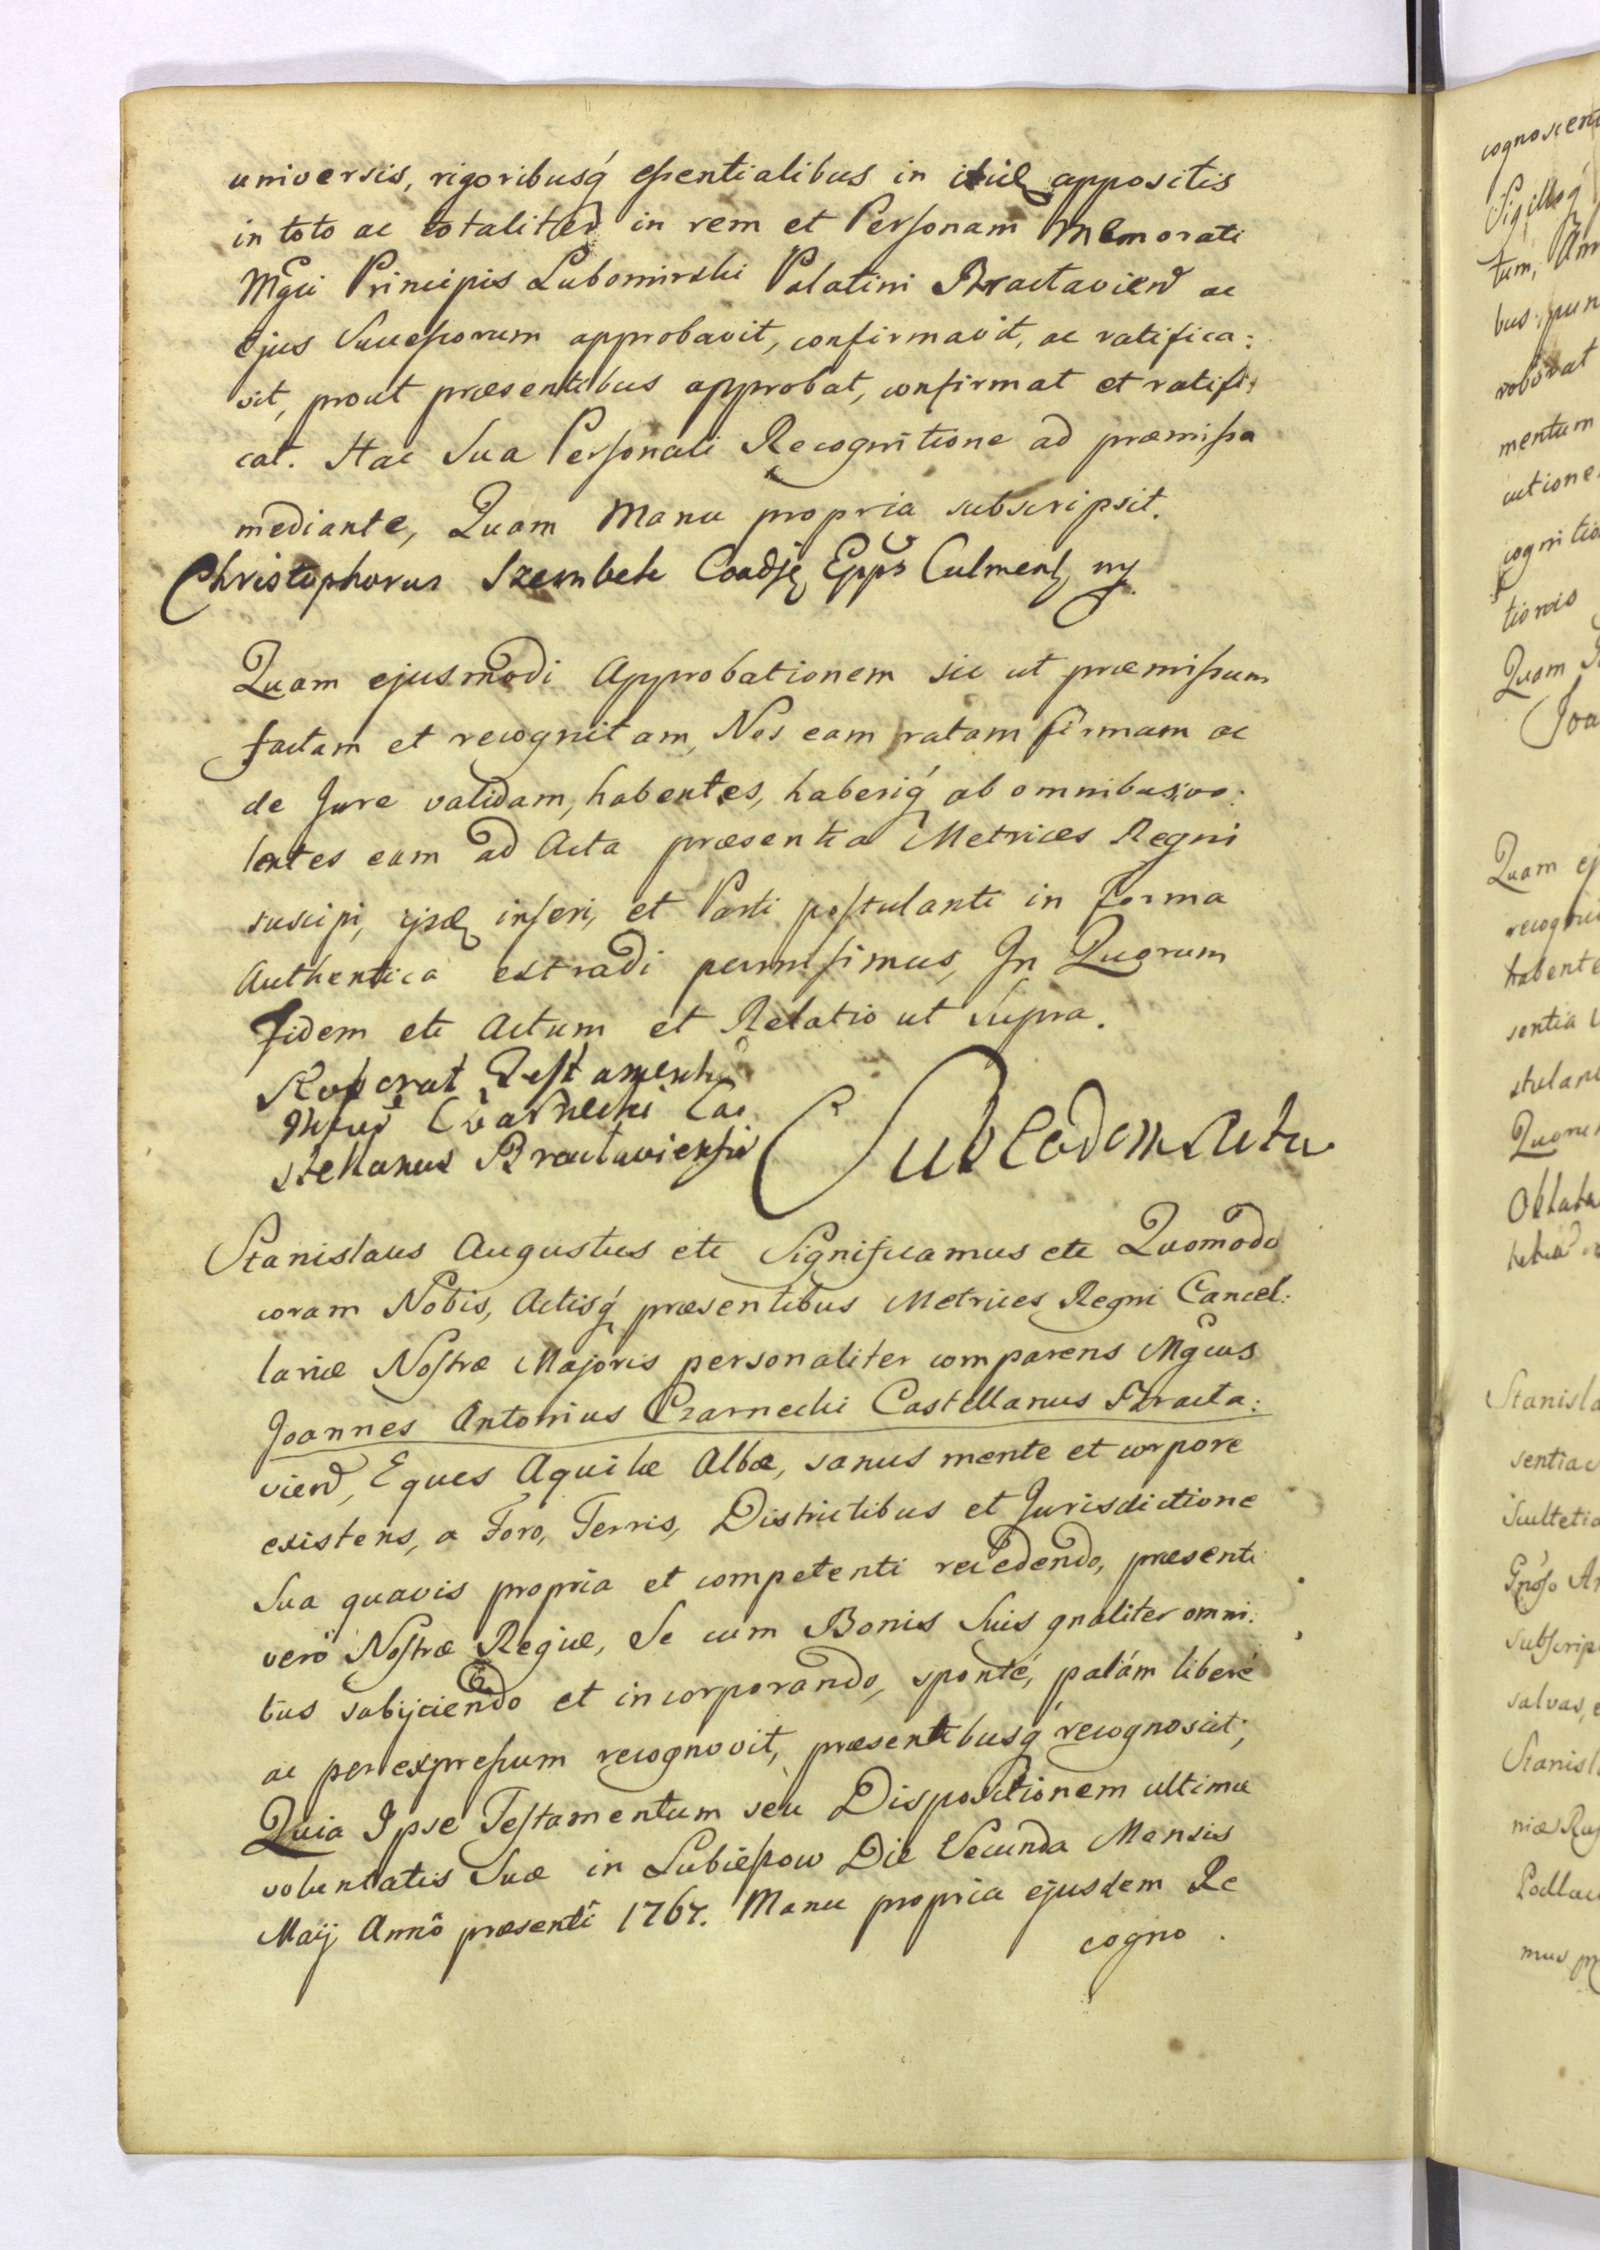 universis, rigoribusq́ eſsentialibus in appositis
in toto ac totaliter in rem et Perſonam Memorati
Mgci Principis Lubomirski Palatini Bractavien ac
Ejus Succeſsorum approbavit, confirmavit, ac ratifica:
vit, prout præsentibus approbat, confirmat et ratifi:
cat. Hac Sua Perſonali Recognitione ad præmiſsa
mediante, Quam Manu propria subscripsit.
Christophorus Szembek Coadj Epps Culmens mp
Quam ejusmodi Approbationem sic ut præmiſsum
factam et recognitam, Nos eam ratam firmam ac
de Jure validam, habentes, haberiq́ ab omnibus vo:
lentes eam ad Acta præsentia Metrices Regni
suscipi, inſeri, et Parti poſtulanti in Forma
Authentica extradi permiſimus, In Quorum
Fidem etc Actum et Relatio ut Supra.
Roborat Teſtamenti
Czarnecki Cas
stellanus Bractaviensis
Sub Eodem Actu
Stanislaus Augustus etc Significamus etc Quomodo
coram Nobis, Actisq́ præsentibus Metrices Regni Cancel:
lariæ Noſtræ Majoris personaliter comparens Mgcus
Joannes Antonius Czarnecki Castellanus Bracta:
vien, Eques Aquilæ Albæ, sanus mente et corpore
existens, a Foro, Terris, Districtibus et Jurisdictione
Sua quavis propria et competenti recedendo, præsenti
verò Noſtræ Regiæ, Se cum Bonis Suis gnaliter omni:
bus subijciendo et incorporando, sponté, palám liberé
ac per expreſsum recognovit, præsentibusq́ recognoscit;
Quia Ipse Teſtamentum seu Dispositionem ultimæ
voluntatis Suæ in Lubieſzow Die Secunda Mensis
Maij Annô præsenti 1767. Manu propria ejusdem Re
cogno.
cognoscent
Sigilloq́
tum,
bus pun
roborat
mentum
cutione
cognitio
tionis
Quam
Joa
Quam ej
recogni
habente
sentia
stulan
Quorum
Oblata
Stanisla
sentiac
Scultetia
Subſcrip
salvas, e
Stanisl
Podlac
mus